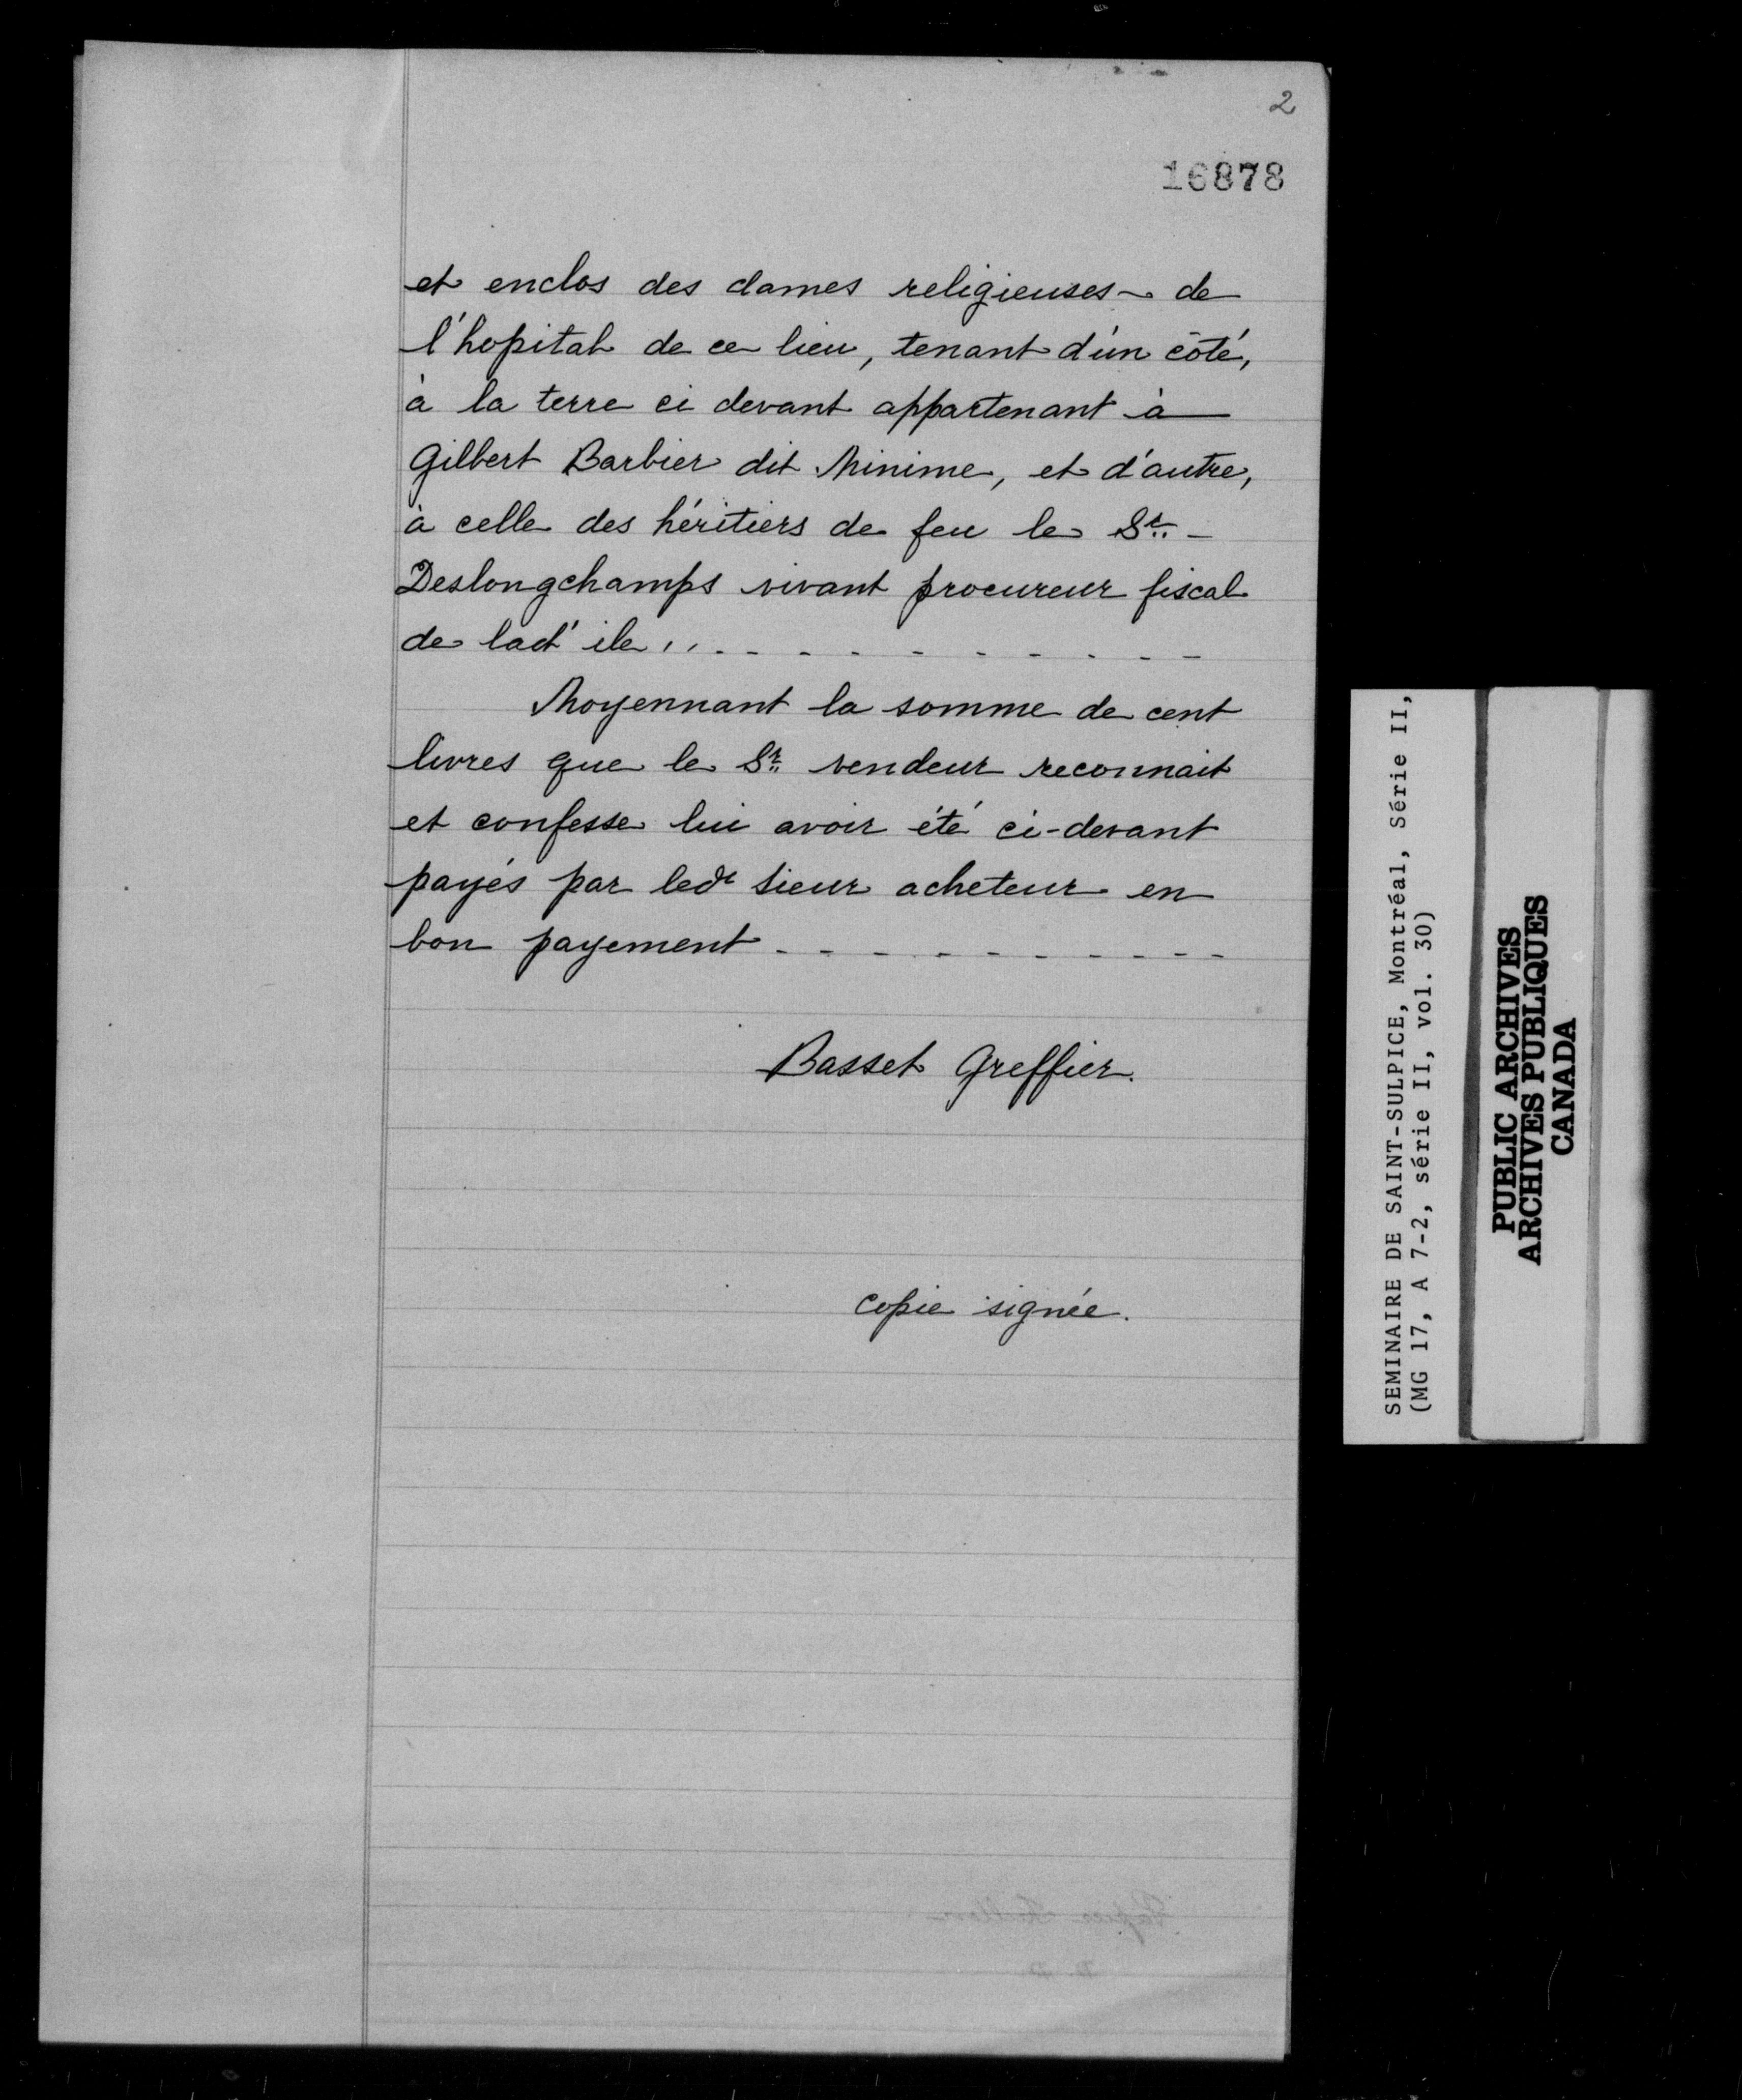 2
16878
et enclos des dames religieuses de
l'hopital de ce lieu, tenant d'un côté,
à la terre ci devant appartenant à
Gilbert Barbier dit Minime, et d'autre,
à celle des héritiers de feu le Sr. -
Deslongchamps vivant procureur fiscal
de lad' ile,, - - - - - - - - -
Moyennant la somme de cent
livres que le Sr. vendeur reconnait
et confesse lui avoir été ci-devant
payés par ledt sieur acheteur en
bon payement - - - - - - - - -
Basset Greffier.
copie signée.
SEMINAIRE DE SAINT-SULPICE, Montréal, Série II,
(MG 17, A 7-2, série II, vol. 30)
PUBLIC ARCHIVES
ARCHIVES PUBLIQUES
CANADA